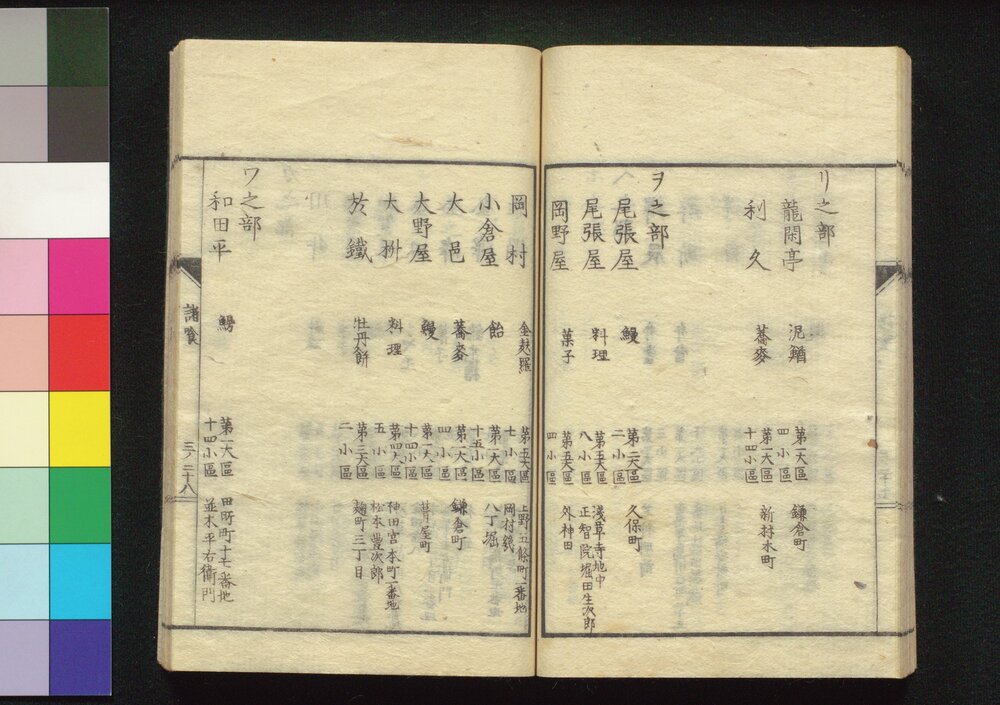 リ之部
龍閑亭 泥鰌 第一大區 四小區 鎌倉町
利久 蕎麥 第一大區 十四小區 新材木町
ヲ之部
尾張屋 鰻 第二大區 二小區 久保町
尾張屋 料理 第五大區 八小區 淺草寺地中 正智院堀田生次郎
岡野屋 菓子 第五大區 四小區 外神田
岡村 金麩羅 第五大區 七小區 上野五條町一番地 岡村錢
小倉屋 飴 第一大區 十五小區 八丁堀
大邑 蕎麥 第一大區 四小區 鎌倉町
大野屋 鰻 第一大區 十四小區 葺屋町
大桝 料理 第四大區 五小區 神田宮本町一番地 松本豊次郎
於鐵 牡丹餅 第三大區 二小區 麹町三丁目
ワ之部
和田平 鰻 第一大區 十四小區 田所町十七番地 並木平右衛門
諸食
三ノ二十八